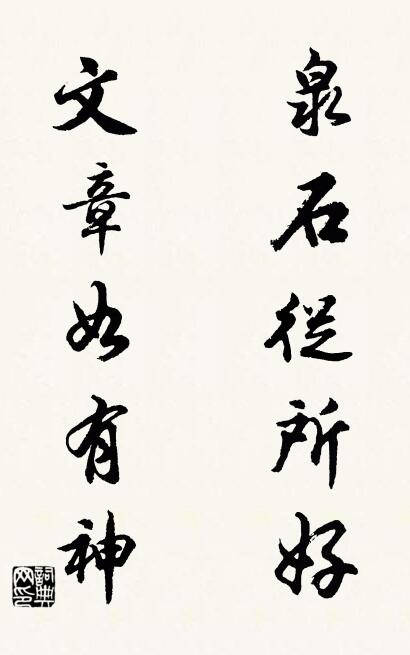 泉石從所好
文章如有神
詞典網印